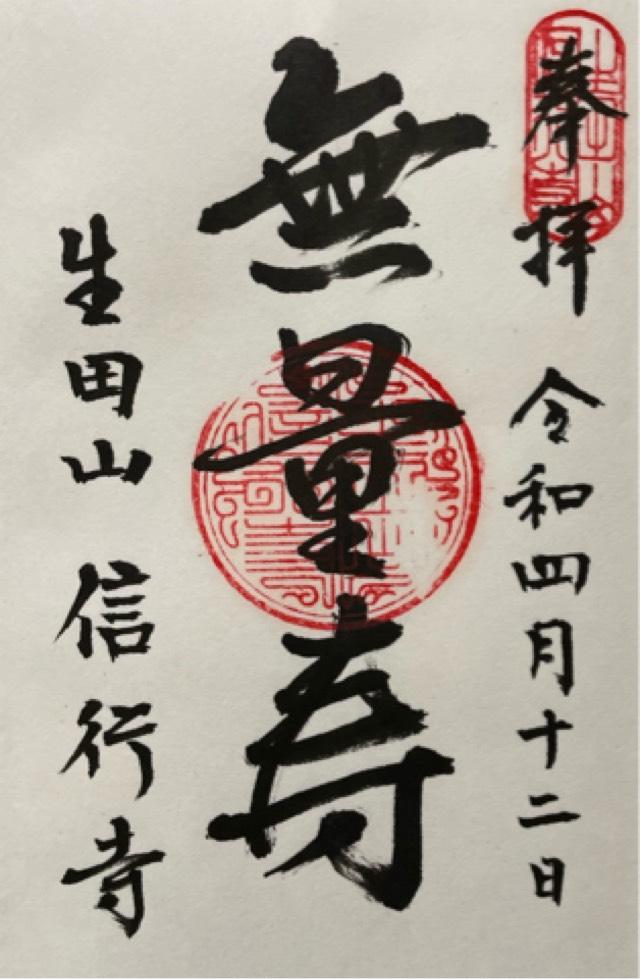 奉拝 令和四月十二日
無量寿
生田山 信行寺